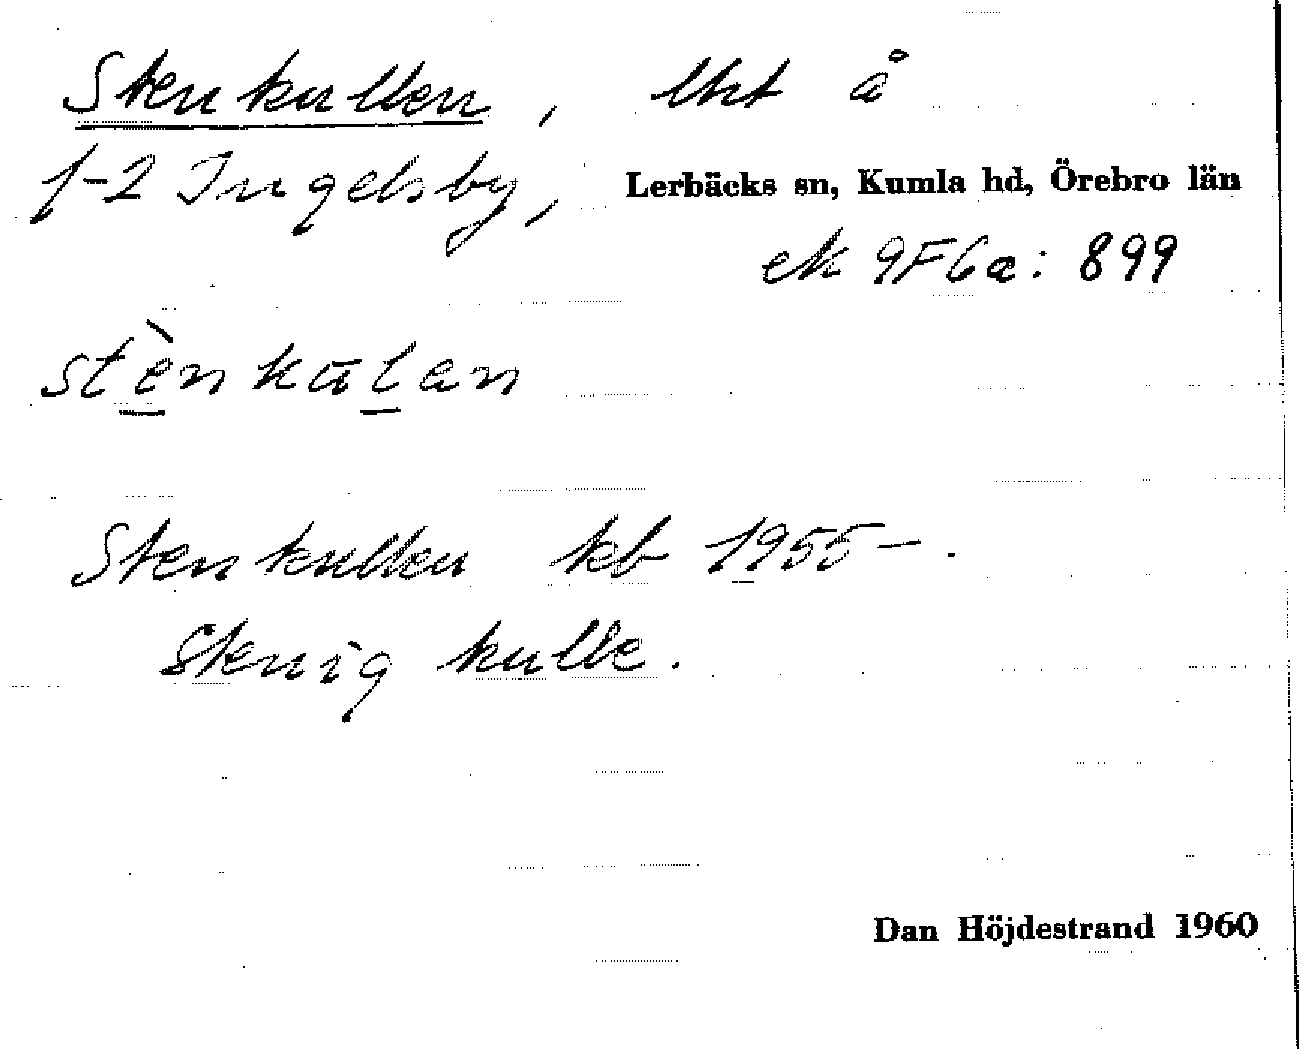 Stenkullen, lht å
1-2 Ingelsby, Lerbäcks sn, Kumla hd, Örebro län
ek 9F6a: 899
stènkulan
Stenkullen kb 1955–.
Stenig kulle.
Dan Höjdestrand 1960